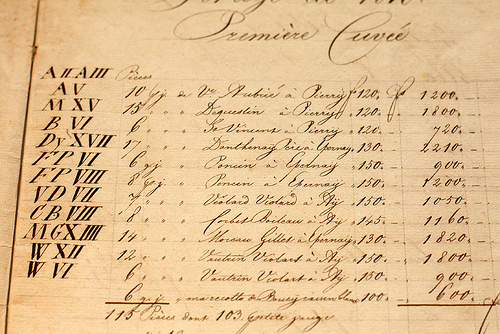 Première Cuvée
A II A III Pièces
A V 10 g.j. de Vve Aubué à Pierry f 120. f 1200.
M XV 15 " " Duguestin à Pierry 120. 1800.
B VI 6 " " St Vincent à Pierry 120. 720.
Dy XVII 17 " " à Epernay 130. 2210.
F P VI 6 g.j. " Poncin à Epernay 150. 900.
F P VIII 8 g.j. " Poncin à Epernay 150. 1200.
V D VII 7 " " Violart à Ay 150. 1050.
C B VIII 8 " " Corbet à Ay 145. 1160.
M G XIIII 14 " " Moreau Gillet à Epernay 130. 1820.
W XII 12 " " Vautrin Violart à Ay 150. 1800.
W VI 6 " " Vautrin Violart à Ay 150. 900.
6 g.j. " 100. 600.
115 Pièces dont 103 petite jauge